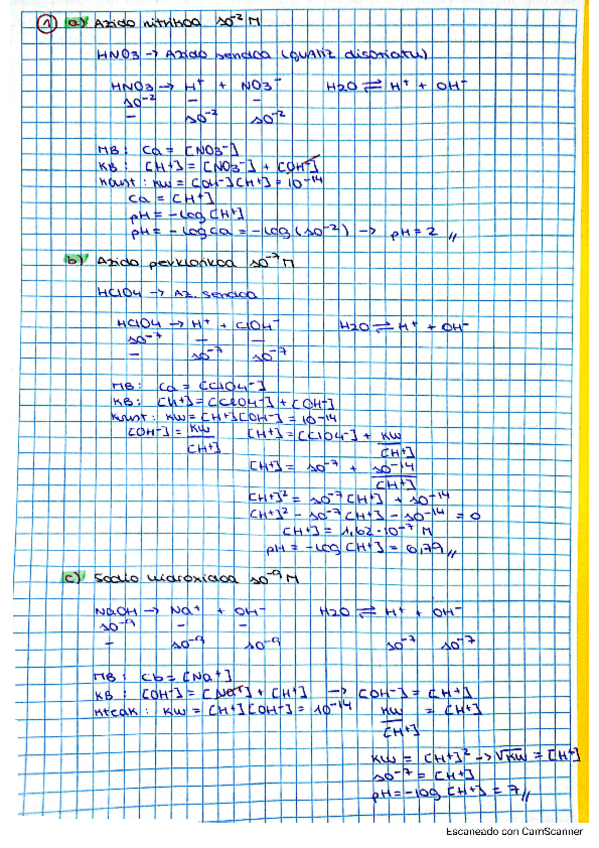 ① a) Azido nitrikoa 10⁻² M
HNO3 → Azido sendoa (guztiz disoziatu)
HNO3 → H⁺ + NO3⁻ H2O ⇌ H⁺ + OH⁻
10⁻² — —
— 10⁻² 10⁻²
MB: Ca = [NO3⁻]
KB: [H+] = [NO3⁻] + [OH⁻]
Konst: Kw = [OH⁻][H+] = 10⁻¹⁴
Ca = [H+]
pH = -log [H+]
pH = -log Ca = -log (10⁻²) → pH = 2 //
b) Azido perklorikoa 10⁻⁷ M
HClO4 → Az. sendoa
HClO4 → H⁺ + ClOH⁻ H2O ⇌ H⁺ + OH⁻
10⁻⁷ — —
— 10⁻⁷ 10⁻⁷
MB: Ca = [ClO4⁻]
KB: [H+] = [ClO4⁻] + [OH⁻]
Konst: Kw = [H+][OH⁻] = 10⁻¹⁴
[OH⁻] = Kw/[H+] [H+] = [ClO4⁻] + Kw/[H+]
[H+] = 10⁻⁷ + 10⁻¹⁴/[H+]
[H+]² = 10⁻⁷ [H+] + 10⁻¹⁴
[H+]² - 10⁻⁷ [H+] - 10⁻¹⁴ = 0
[H+] = 1,62·10⁻⁷ M
pH = -log [H+] = 6,79 //
c) Sodio hidroxidoa 10⁻⁹ M
NaOH → Na⁺ + OH⁻ H2O ⇌ H⁺ + OH⁻
10⁻⁹ — —
— 10⁻⁹ 10⁻⁹ 10⁻⁷ 10⁻⁷
MB: Cb = [Na⁺]
KB: [OH⁻] = [Na⁺] + [H+] → [OH⁻] = [H+]
Kteak: Kw = [H+][OH⁻] = 10⁻¹⁴ Kw/[H+] = [H+]
Kw = [H+]² → √Kw = [H+]
10⁻⁷ = [H+]
pH = -log [H+] = 7 //
Escaneado con CamScanner